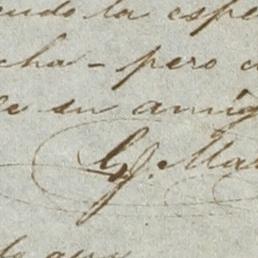 endo la espe
cha - pero c
e su amig
G. Ma